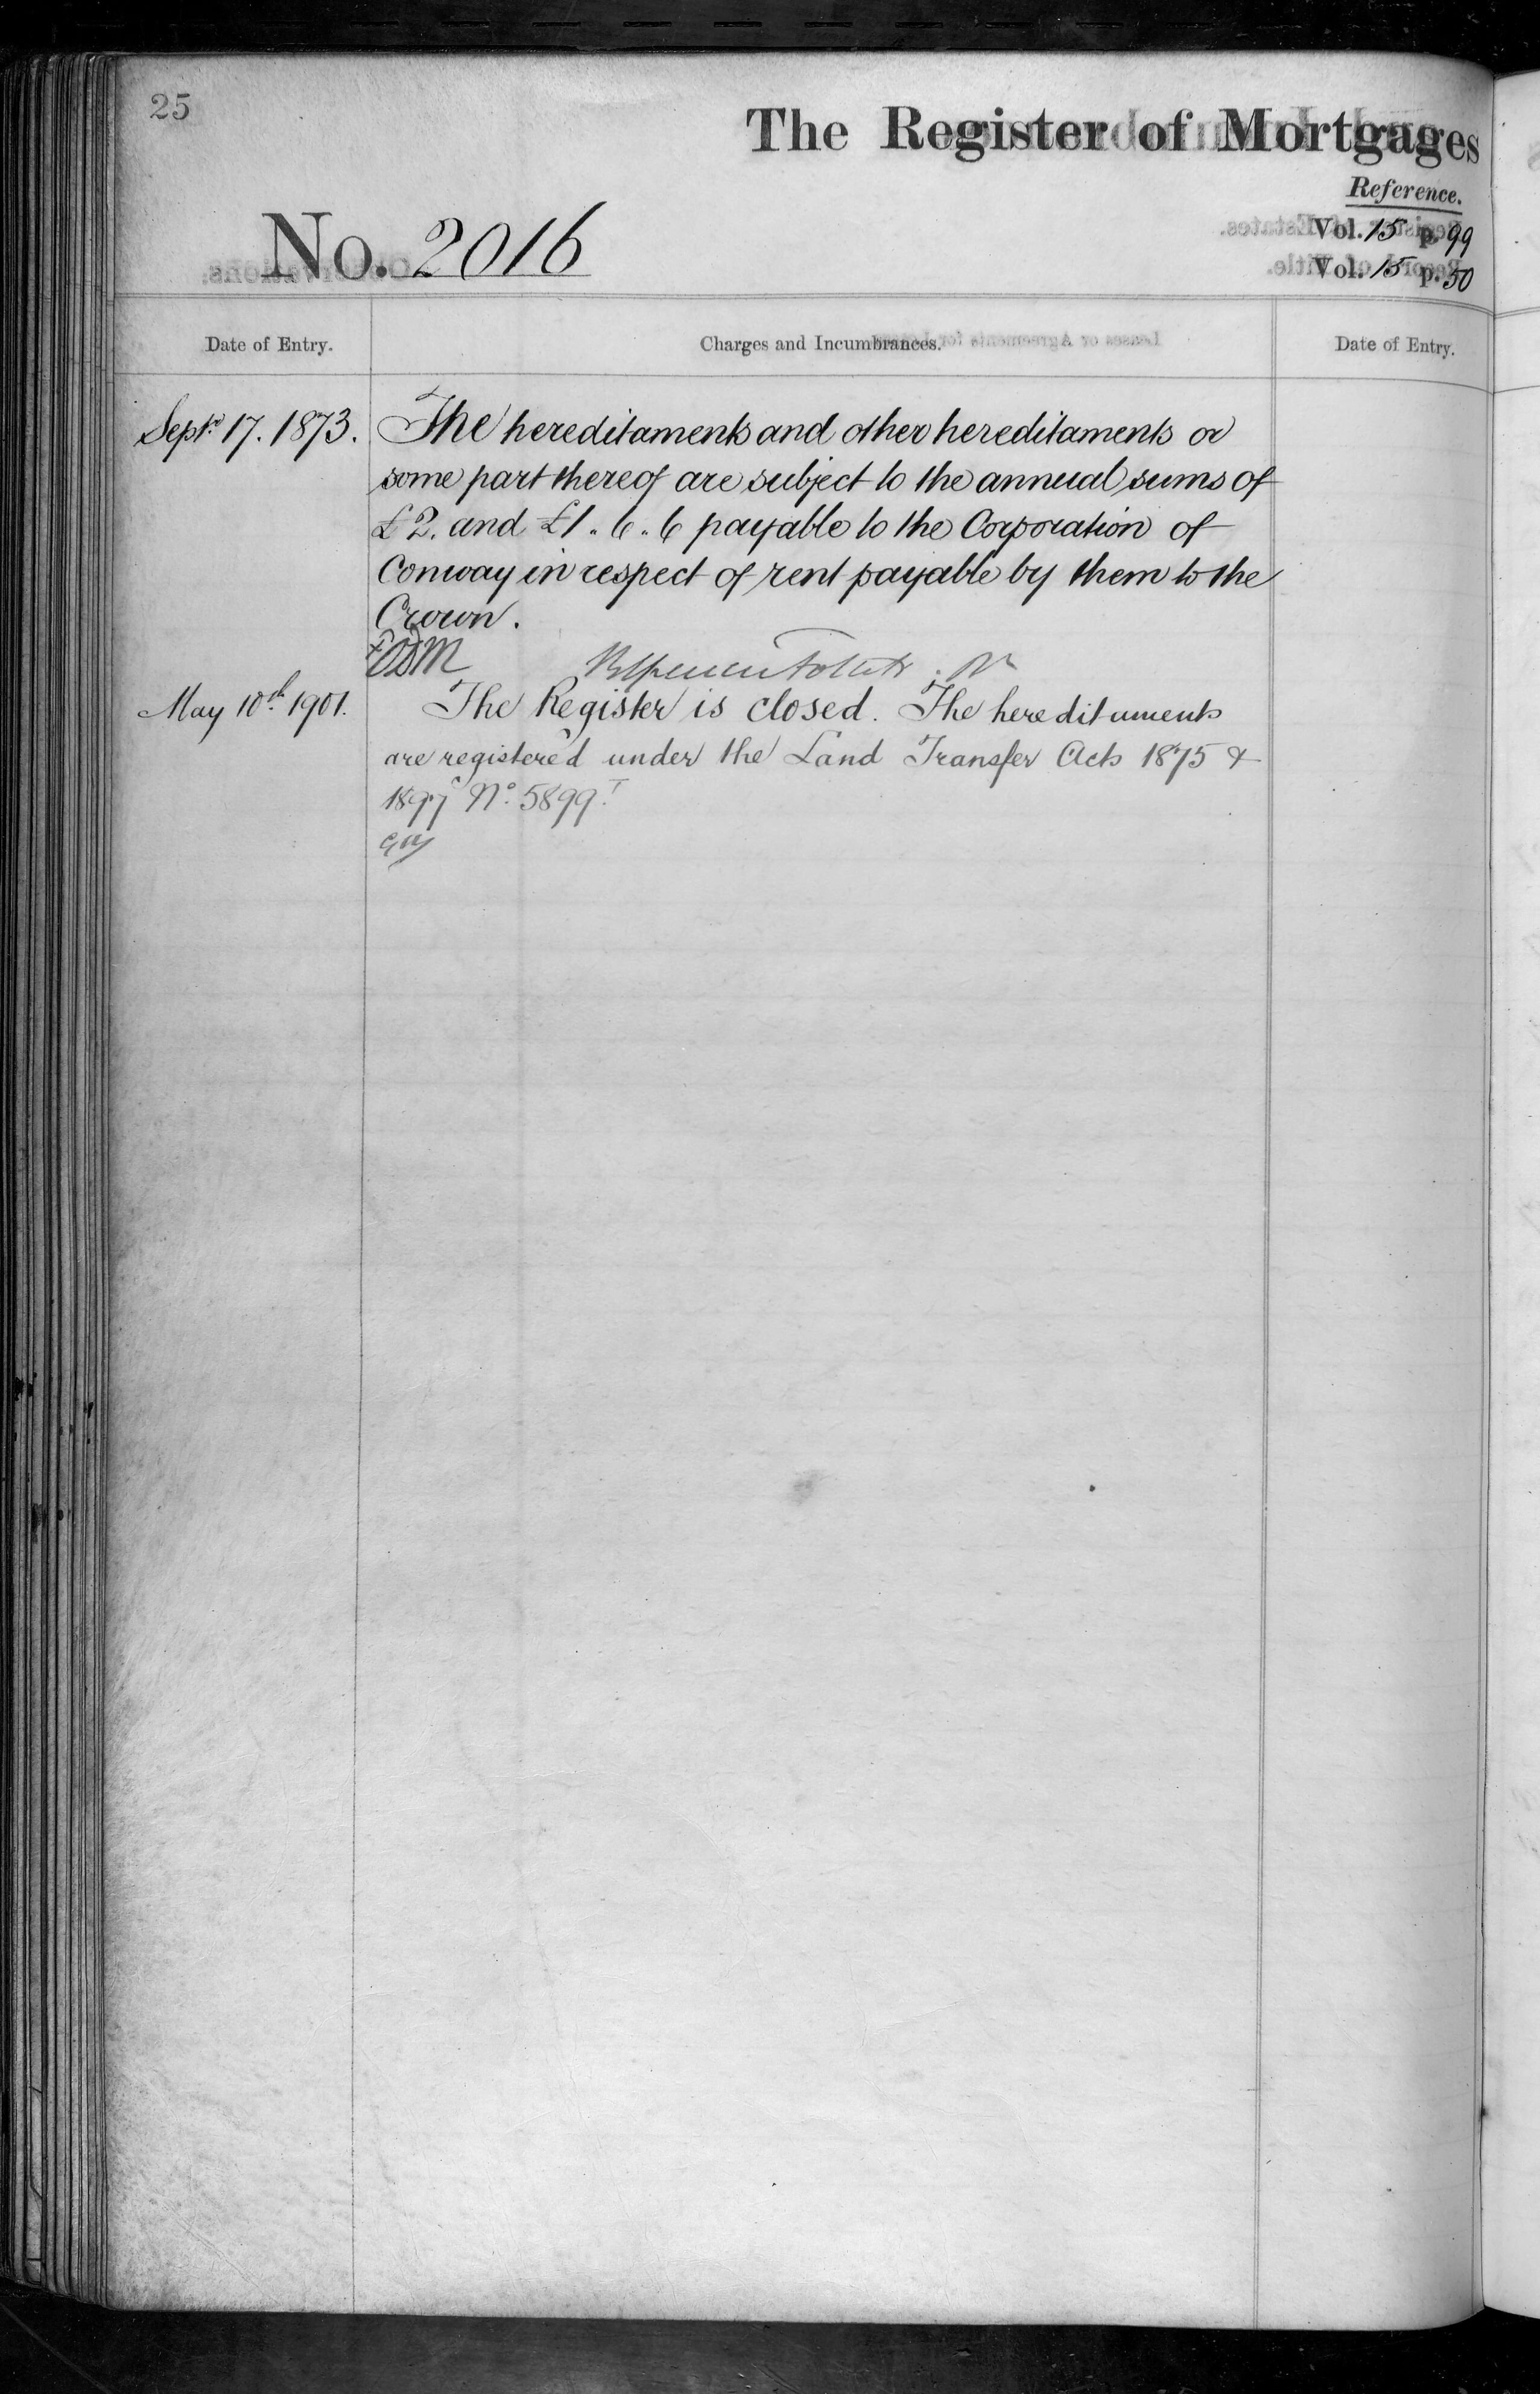 25
The Register of Mortgages
Reference.
No. 2016
Vol. 15 p. 99
Vol. 15 p. 50
Date of Entry.
Charges and Incumbrances.
Date of Entry.
Septr. 17. 1873.
The hereditaments and other hereditaments or
some part thereof are subject to the annual sums of
£2. and £1.. 6.. 6 payable to the Corporation of
Conway in respect of rent payable by them to the
Crown.
May 10th 1901.
The Register is closed. The hereditaments
are registered under the Land Transfer Acts 1875 &
1897 No. 5899.